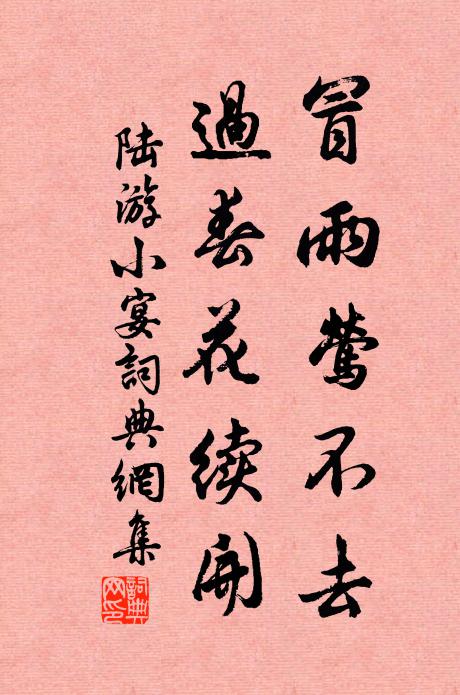 冒雨莺不去
過春花续開
陆游小宴詞典網集
詞典
网印